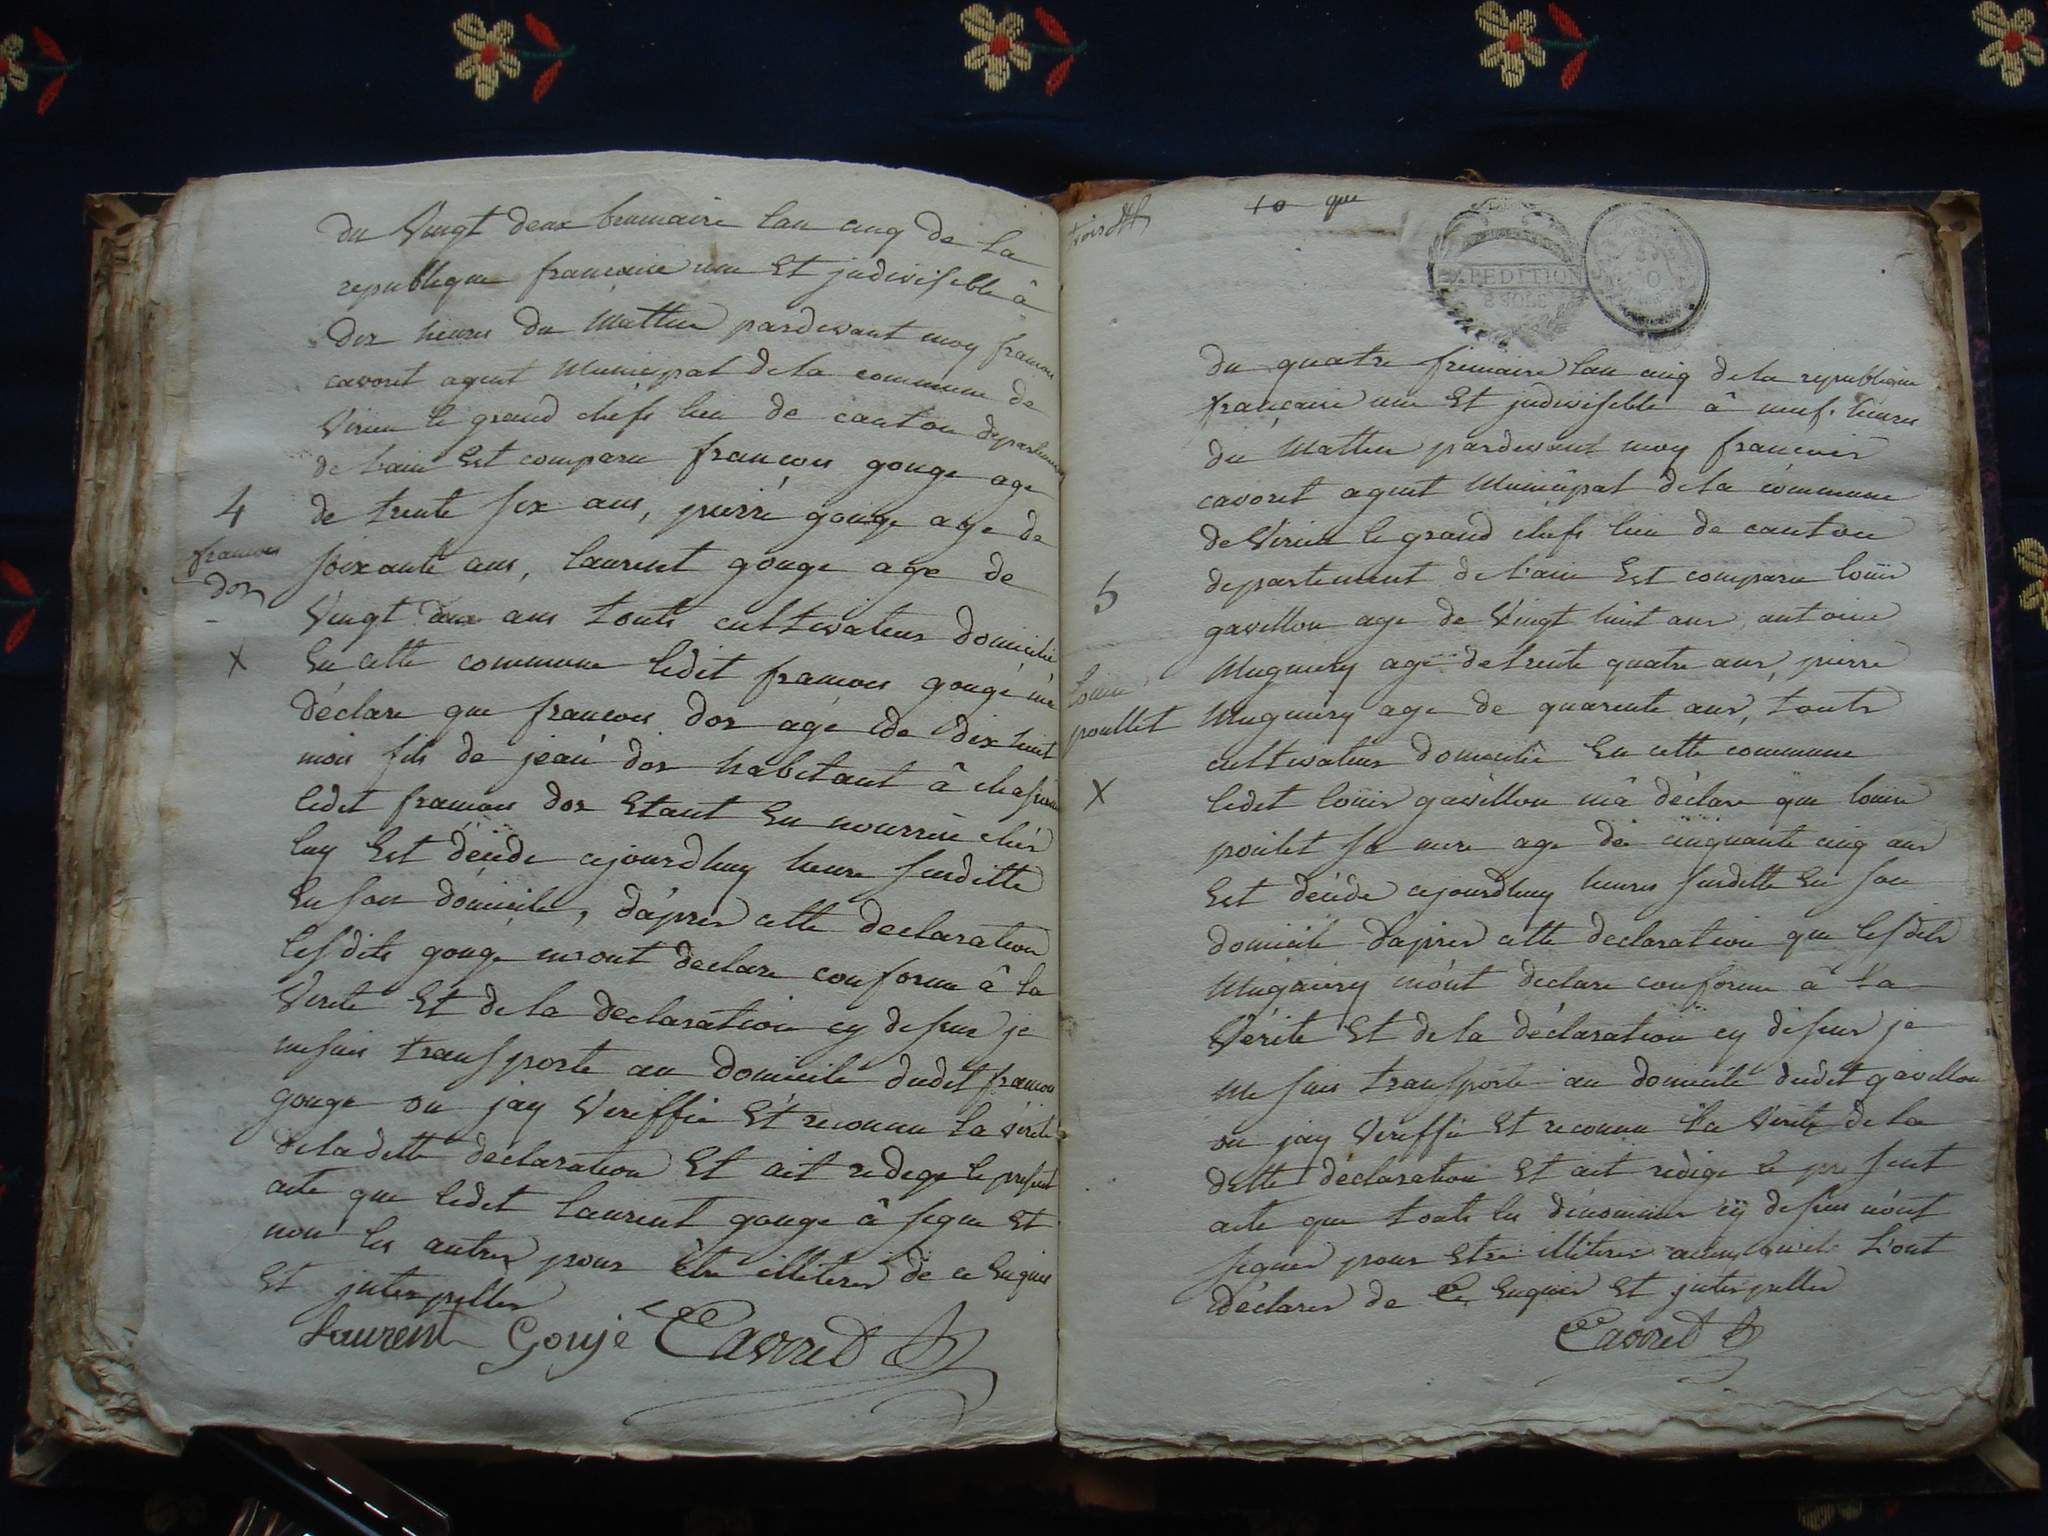 du Vingt deux brumaire lan cinq de la
republique francaise une Et jndivisible â
dix heures du Mattin pardevant moy francois
cavoret agent Municipal de la commune de
Virieu le grand chefs lieu de canton departement
de Lain Est comparu francois gouge age
de trente six ans, pierre gouge age de
soixante ans, laurent gouge age de
Vingt deux ans touts cultivateurs domicilié
4
francois
dor
X
En cette commune ledit francois gouge m'a
déclare que francois dor agé de dix huit
mois fils de jean dor habitant â
ledit francois dor Etant En nourrice chés
luy Est décéde cejourdhuy heure susditte
En son domicile, d'apres cette declaration
lesdits gouge mont declare conforme â la
Verite Et de la declaration cy dessus je
me suis transporte au domicile dudit francois
gouge ou jay Veriffié Et reconnu la vérité
de la ditte declaration Et ait redige le present
acte que ledit laurent gouge â signe Et
non les autres pour être illiteres de ce Enquis
Et jnterpelles
Laurent Gouje Cavoret
10 que
EXPEDITION
2 SOLS
du quatre frimaire lan cinq de la republique
francaise une Et jndivisible â neuf heures
du Mattin pardevant moy francois
cavoret agent Municipal de la commune
de Virieu le grand chefs lieu de canton
departement de Lain Est comparu louis
gavillon age de Vingt huit ans, antoine
Mugniery agé de trente quatre ans, pierre
Mugniery age de quarente ans, touts
cultivateurs domicilié En cette commune
5
louise
poullet
X
ledit louis gavillon mâ déclare que louise
poulet sa mere age de cinquante cinq ans
Est décéde cejourdhuy heures susditte En son
domicile d'apres cette declaration que lesdits
Mugniery m'ont declare conforme â la
Vérité Et de la déclaration cy dessus je
me suis transporte au domicile dudit gavillon
ou jay Veriffié Et reconnu la Verite de la
ditte déclaration Et ait rédige le present
acte que touts les dénommes cy dessus n'ont
signer pour Etre illiteres ainsy quils l'ont
déclarer de ce Enquis Et jnterpelles
Cavoret